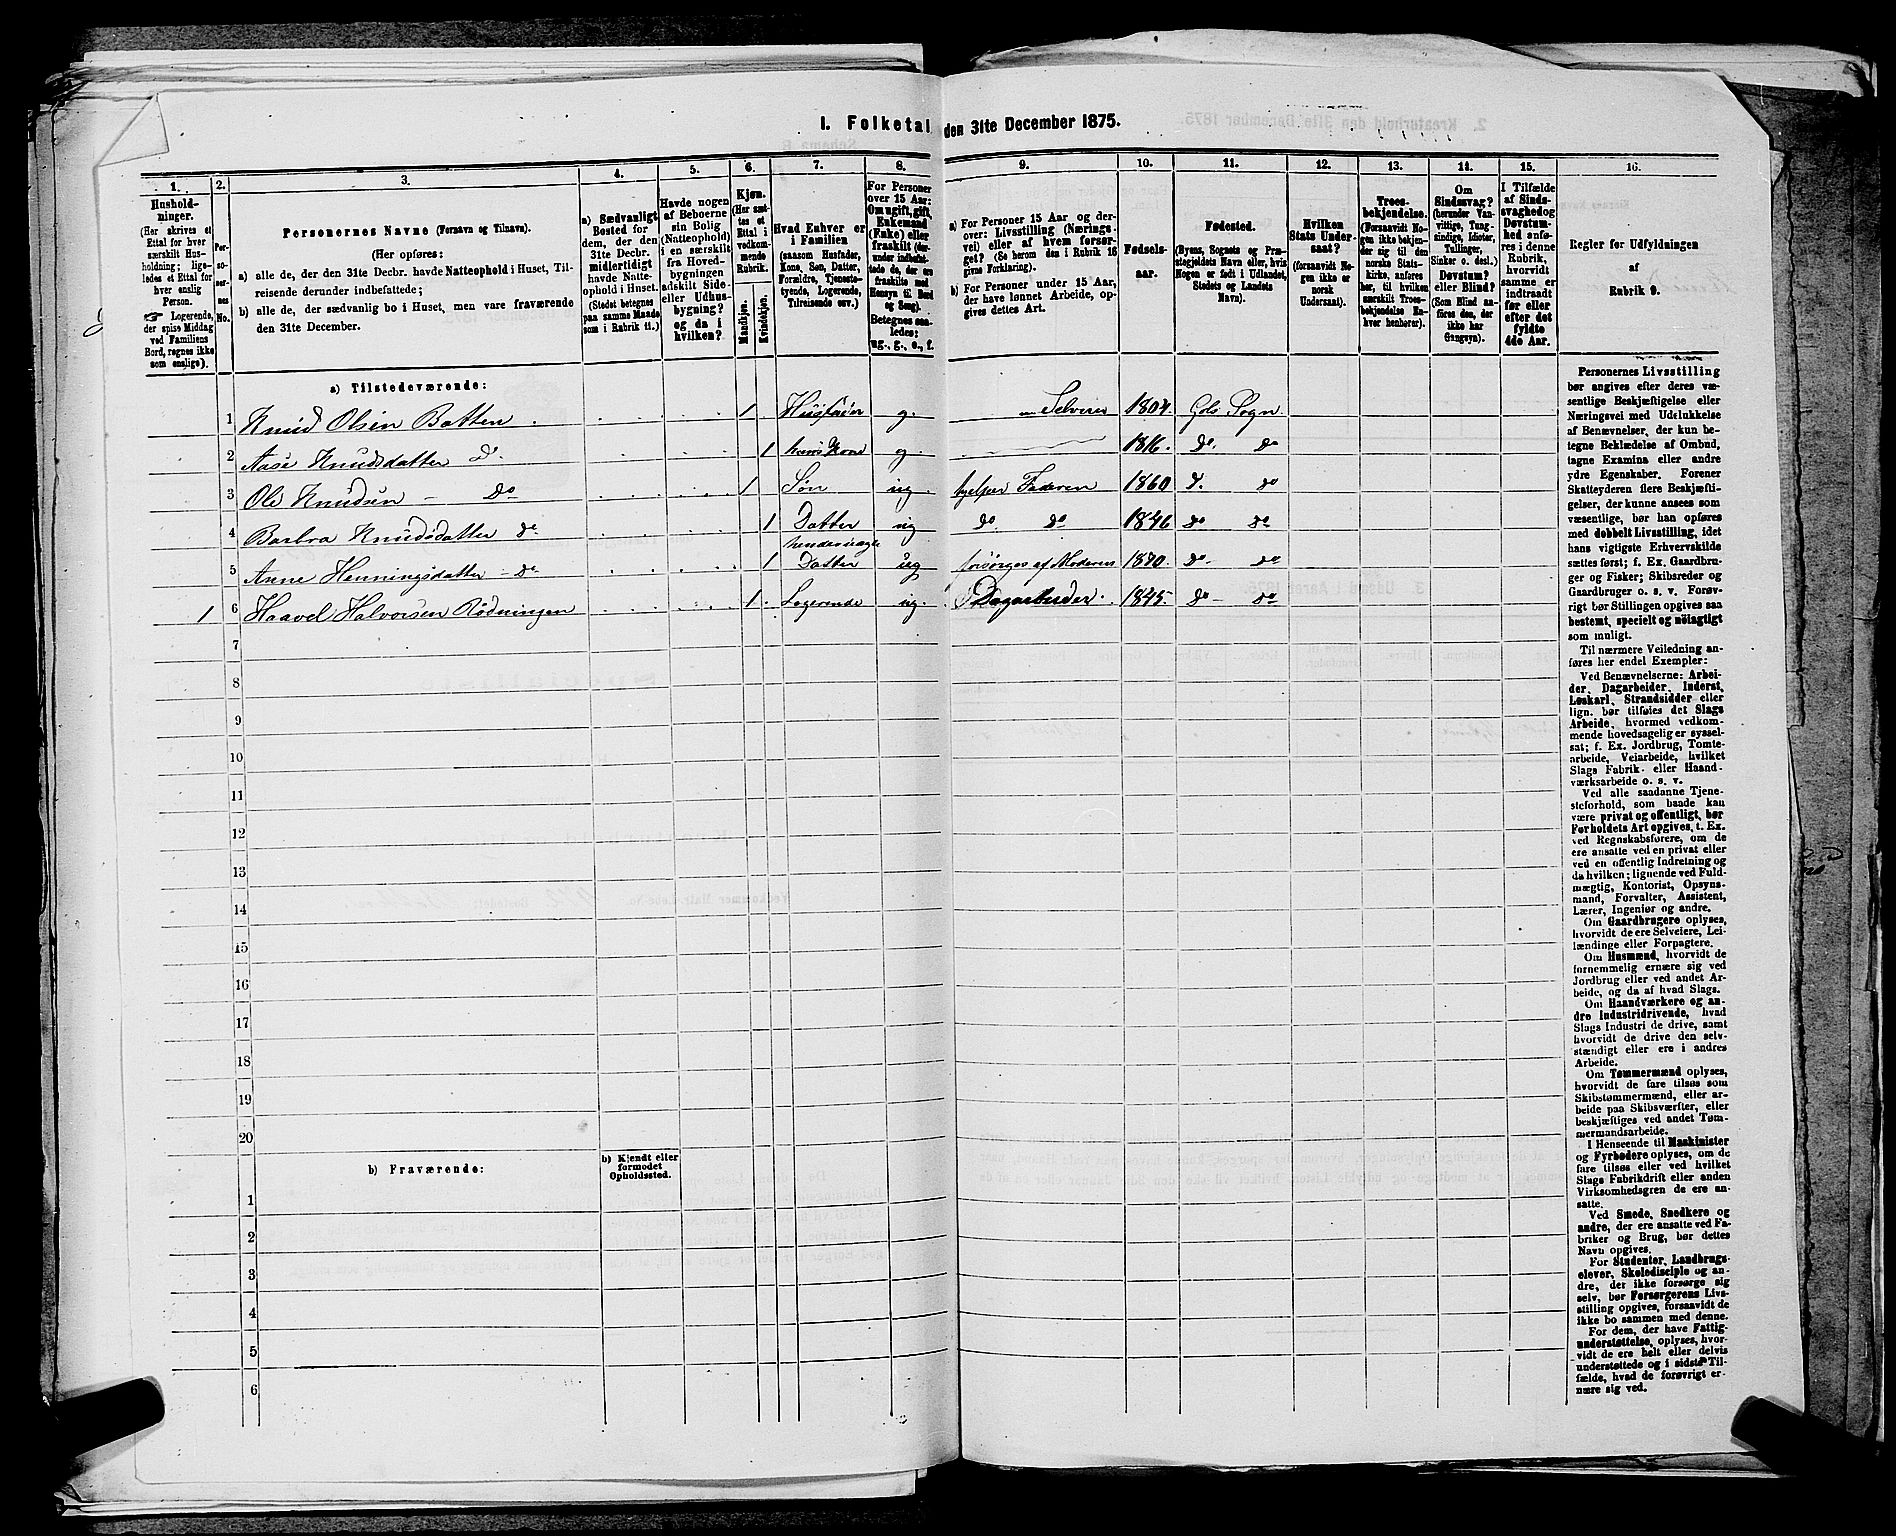 I. Folketal den 31te December 1875.
1. 2. 3. 4. 5. 6. 7. 8. 9. 10. 11. 12. 13. 14. 15. 16.
Hushold-
ninger.
(Her skrives et
Ettal for hver
særskilt Hus-
holdning; lige-
ledes et Ettal for
hver enslig
Person.
☞ Logerende,
der spise Middag
ved Familiens
Bord, regnes ikke
som enslige).
Per-
so-
ner-
nes
No.
Personernes Navne (Fornavn og Tilnavn).
(Her opføres:
a) alle de, der den 31te Decbr. havde Natteophold i Huset, Til-
reisende derunder indbefattede;
b) alle de, der sædvanlig bo i Huset, men vare fraværende
den 31te December.
a) Sædvanligt
Bosted for
dem, der den
31te Decbr.
midlertidigt
havde Natte-
ophold i Huset.
(Stedet betegnes
paa samme Maade
som i Rubrik 11.)
Havde nogen
af Beboerne
sin Bolig
(Natteophold)
i en særskilt
fra Hoved-
bygningen
adskilt Side-
eller Udhus-
bygning?
og da i
hvilken?
Kjøn.
(Her sæt-
tes et
Ettal i
vedkom-
mende
Rubrik.
Mandkjøn.
Kvindekjøn.
Hvad Enhver er
i Familien
(saasom Husfader,
Kone, Søn, Datter,
Forældre, Tjeneste-
tyende, Logerende,
Tilreisende osv.)
For Personer
over 15 Aar:
Om ugift, gift,
Enkemand
(Enke) eller
fraskilt (der-
under indbefat-
tede de, der ere
fraskilte med
Hensyn til Bord
og Seng).
Betegnes saa-
ledes:
ug., g., e., f.
a) For Personer 15 Aar og der-
over: Livsstilling (Nærings-
vei) eller af hvem forsør-
get? (Se herom den i Rubrik 16
givne Forklaring).
b) For Personer under 15 Aar,
der have lønnet Arbeide, op-
gives dettes Art.
Fødsels-
aar.
Fødested.
(Byens, Sognets og Præ-
stegjeldets Navn eller, hvis
Nogen er født i Udlandet,
Stedets og Landets
Navn).
Hvilken
Stats Under-
saat?
(forsaavidt No-
gen ikke er
norsk
Undersaat).
Troes-
bekjendelse.
(Forsaavidt No-
gen ikke bekjen-
der sig til den
norske Stats-
kirke, anføres
her, til hvilken
særskilt Troes-
bekjendelse En-
hver henhører).
Om
Sindssvag?
(herunder Van-
vittige, Tung-
sindige, Idioter,
Tullinger,
Sinker o. desl.).
Døvstum?
eller Blind?
(Som Blind an-
føres den, der
ikke har
Gangsyn).
I Tilfælde
af Sinds-
svaghed og
Døvstum-
hed anfø-
res i denne
Rubrik,
hvorvidt
samme er
indtraadt
før eller
efter det
fyldte
4de Aar.
Regler for Udfyldningen
af
Rubrik 9.
a) Tilstedeværende:
1 Knud Olsen Batten 1 Husfader g. Selveier 1804. Gols Sogn
2 Aase Knudsdatter do. 1 hans Kone g. 1816. do do
3 Ole Knudsen – do 1 Søn ug. hjelper Faderen 1860 d. do
4 Barbra Knudsdatter do 1 Datter ug do do 1846 do do
5 Anne Henningsdatter – do 1 Datter ug forsørges af Moderen 1870. do do
1 6 Haavel Halvorsen Rödningen 1. Logerende ug. Dagarbeider. 1845. do – do
7
8
9
10
11
12
13
14
15
16
17
18
19
20
b) Fraværende:
b) Kjendt eller
formodet
Opholdssted.
1
2
3
4
5
6
Personernes Livsstilling
bør angives efter deres væ-
sentlige Beskjæftigelse eller
Næringsvei med Udelukkelse
af Benævnelser, der kun be-
tegne Beklædelse af Ombud,
tagne Examina eller andre
ydre Egenskaber. Forener
Skatteyderen flere Beskjæfti-
gelser, der kunne ansees som
væsentlige, bør han opføres
med dobbelt Livsstilling, idet
hans vigtigste Erhvervskilde
sættes først; f. Ex. Gaardbru-
ger og Fisker; Skibsreder og
Gaardbruger o. s. v. Forøv-
rigt bør Stillingen opgives saa
bestemt, specielt og nöiagtigt
som muligt.
Til nærmere Veiledning an-
føres her endel Exempler:
Ved Benævnelserne: Arbei-
der, Dagarbeider, Inderst,
Løskarl, Strandsidder eller
lign. bør tilføies det Slags
Arbeide, hvormed vedkom-
mende hovedsagelig er syssel-
sat; f. Ex. Jordbrug, Tomte-
arbeide, Veiarbeide, hvilket
Slags Fabrik- eller Haand-
værksarbeide o. s. v.
Ved alle saadanne Tjene-
steforhold, som baade kan
være privat og offentligt, bør
Forholdets Art opgives, t. Ex.
ved Regnskabsførere, om de
ere ansatte ved en privat eller
ved en offentlig Indretning og
da hvilken; lignende ved Fuld-
mægtig, Kontorist, Opsyns-
mand, Forvalter, Assistent,
Lærer, Ingeniør og andre.
Om Gaardbrugere oplyses,
hvorvidt de ere Selveiere, Lei-
lændinge eller Forpagtere.
Om Husmænd, hvorvidt de
fornemmelig ernære sig ved
Jordbrug eller ved andet Ar-
beide, og da af hvad Slags.
Om Haandværkere og an-
dre Industridrivende, hvad
Slags Industri de drive, samt
hvorvidt de drive den selv-
stændigt eller ere i andres
Arbeide.
Om Tømmermænd oplyses,
hvorvidt de fare tilsøs som
Skibstømmermænd, eller ar-
beide paa Skibsværfter, eller
beskjæftiges ved andet Tøm-
mermandsarbeide.
I Henseende til Maskinister
og Fyrbødere oplyses, om de
fare tilsøs eller ved hvilket
Slags Fabrikdrift eller anden
Virksomhedsgren de ere an-
satte.
Ved Smede, Snedkere og
andre, der ere ansatte ved Fa-
briker og Brug, bør dettes
Navn opgives.
For Studenter, Landbrugs-
elever, Skoledisciple og an-
dre, der ikke forsørge sig
selv, bør Forsørgerens Livs-
stilling opgives, forsaavidt de
ikke bo sammen med denne.
For dem, der have Fattig-
understøttelse, oplyses, hvor-
vidt de ere helt eller delvis
understøttede og i sidste Til-
fælde, hvad de forøvrigt er-
nære sig ved.